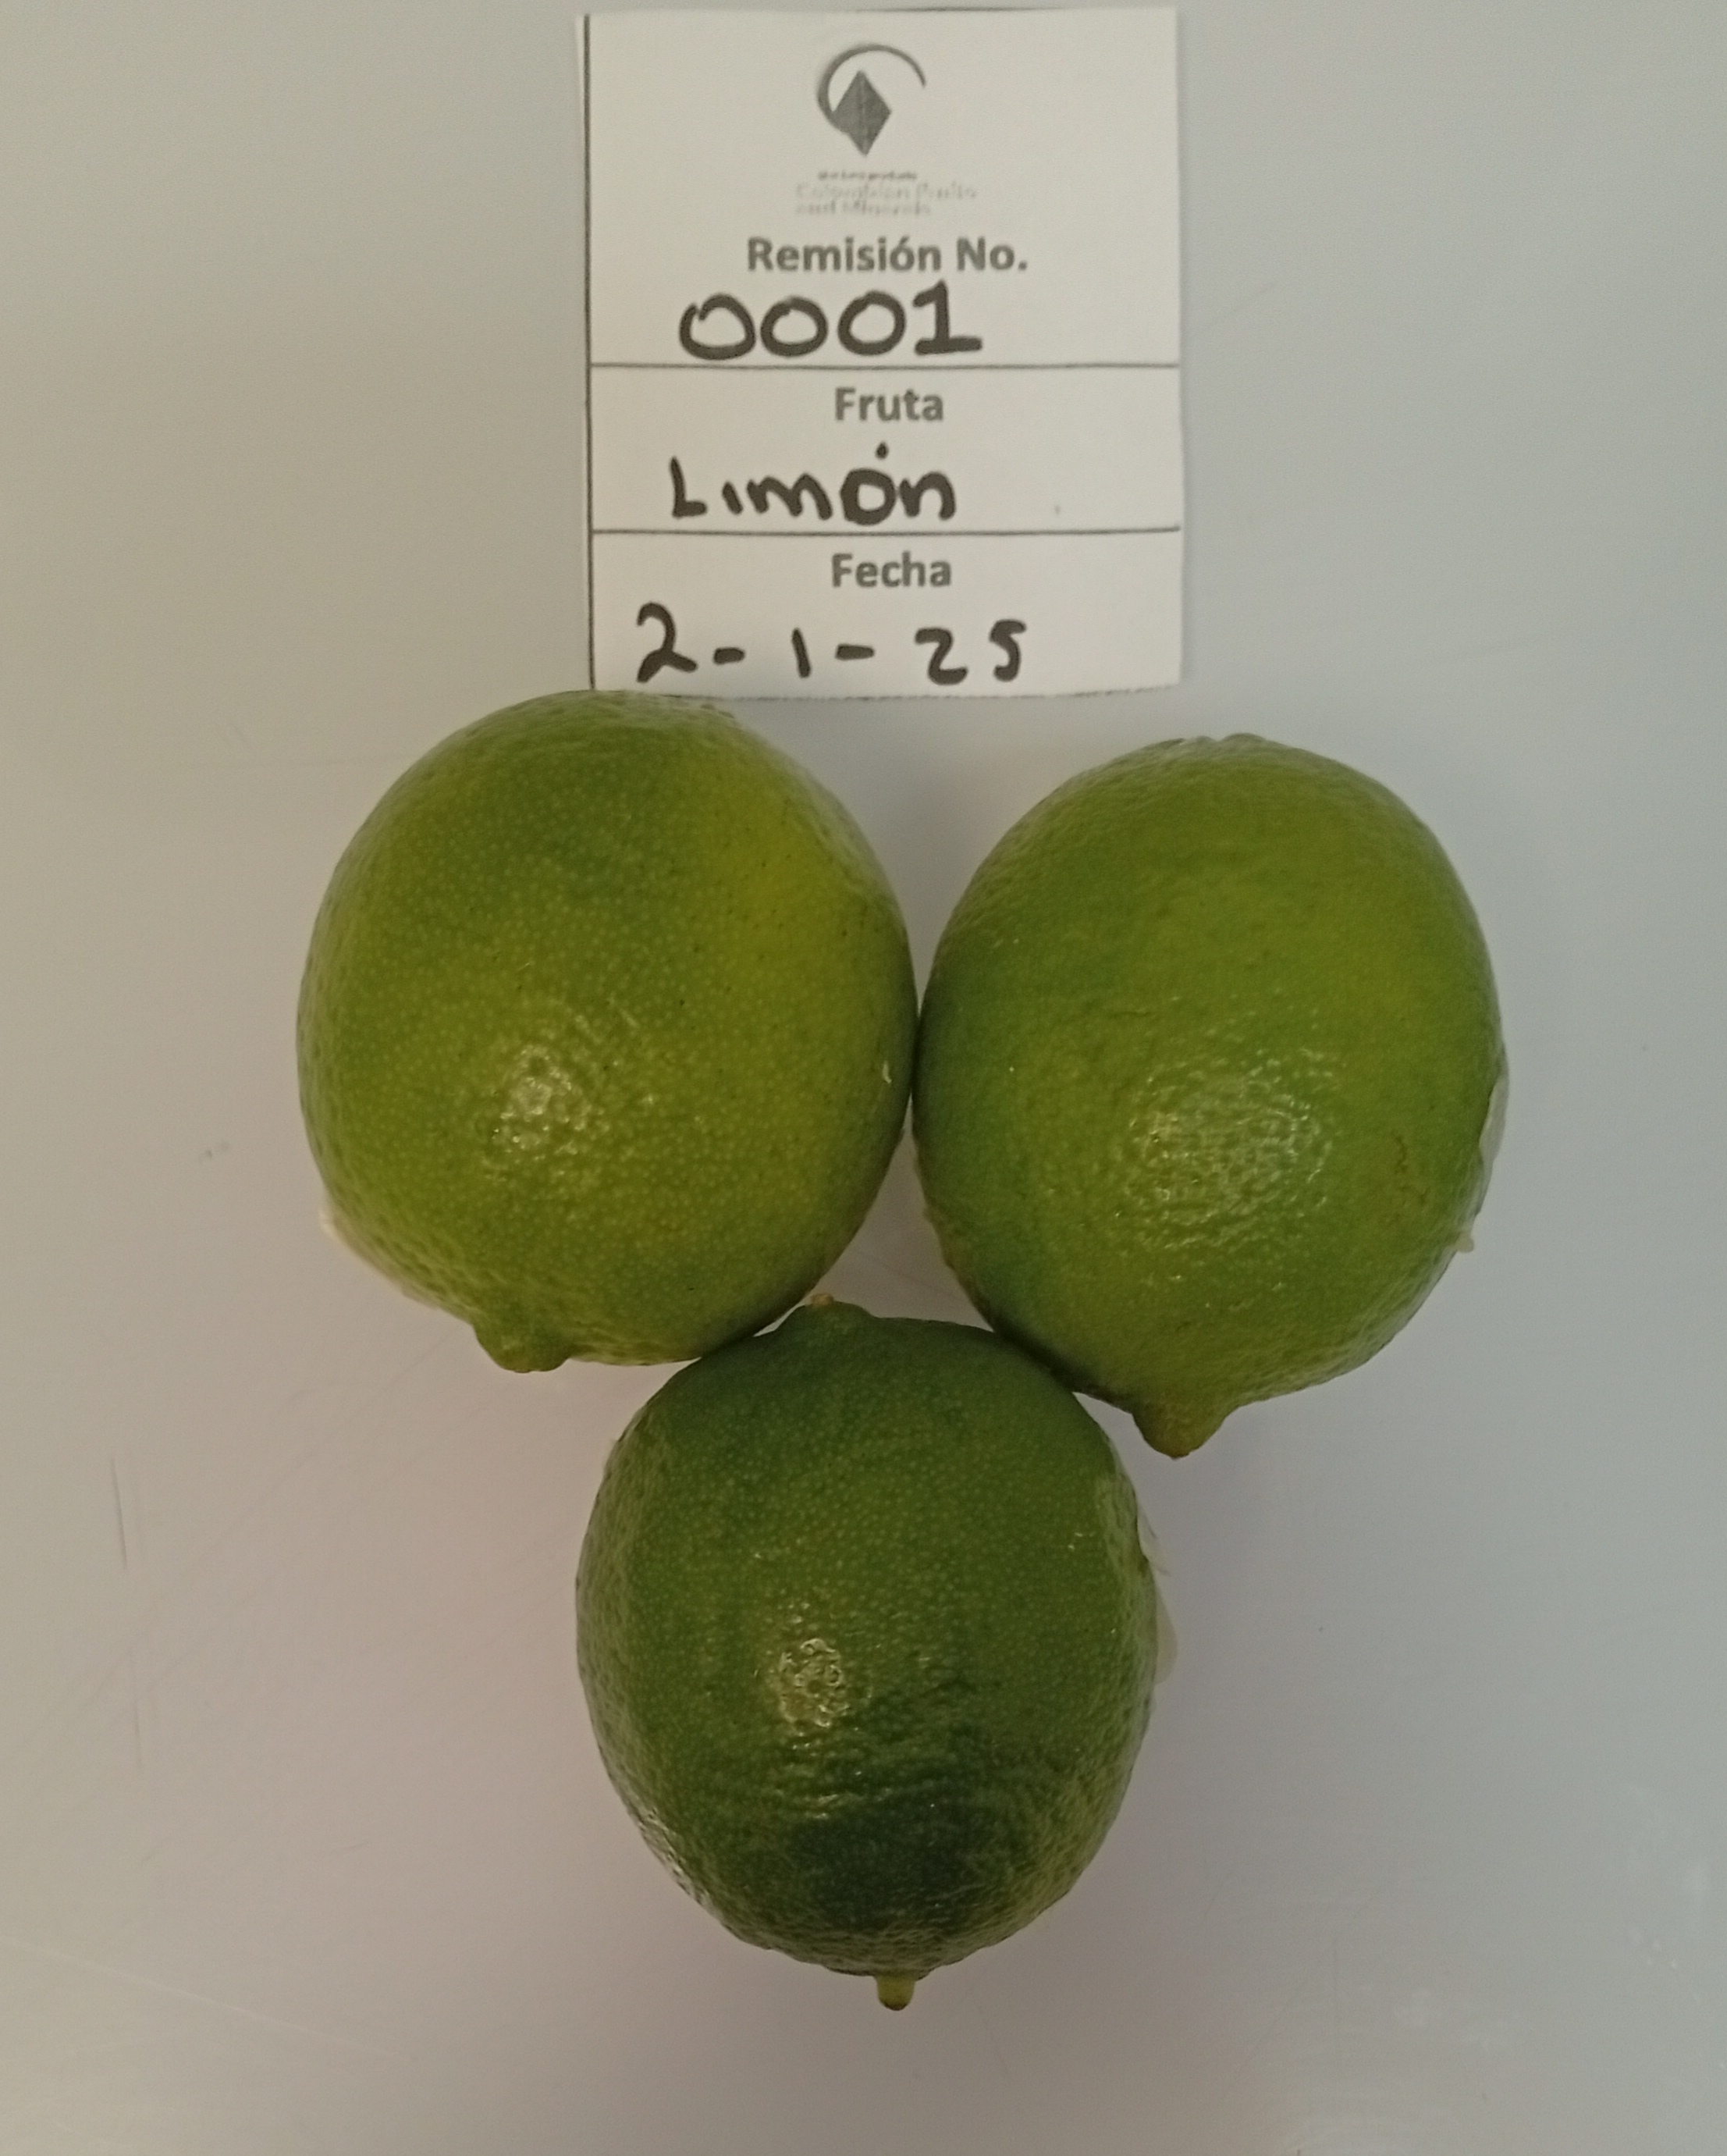 Colombian Fruits
and Minerals
Remisión No.
0001
Fruta
Limón
Fecha
2-1-25